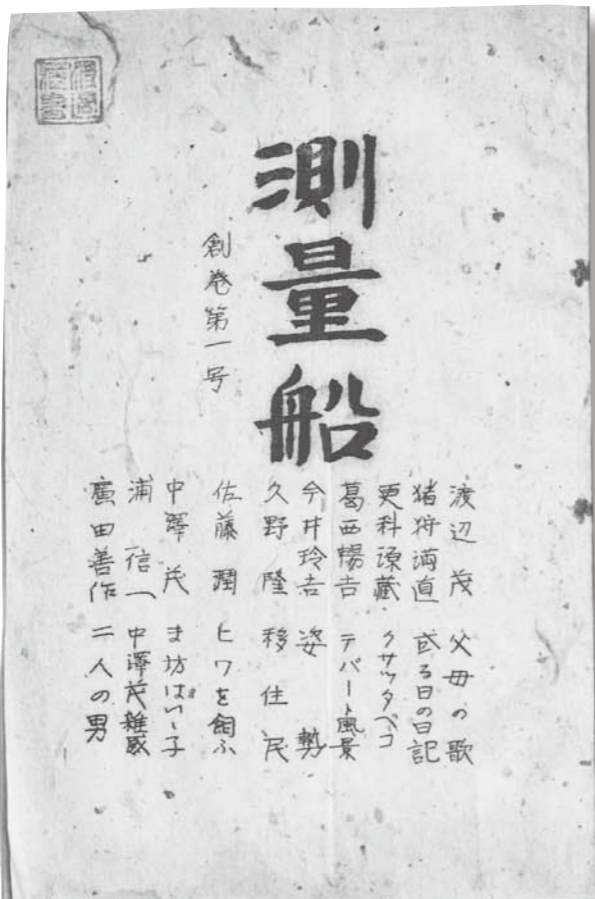 測量船
創巻第一号
渡辺茂 父母の歌
猪狩満直 或る日の日記
更科源蔵 クサツタベコ
葛西暢吉 デパート風景
今井玲吉 姿勢
久野隆 移住民
佐藤潤 ヒワを飼ふ
中澤茂 ま坊はいゝ子
浦信一 中澤茂雑感
廣田善作 二人の男